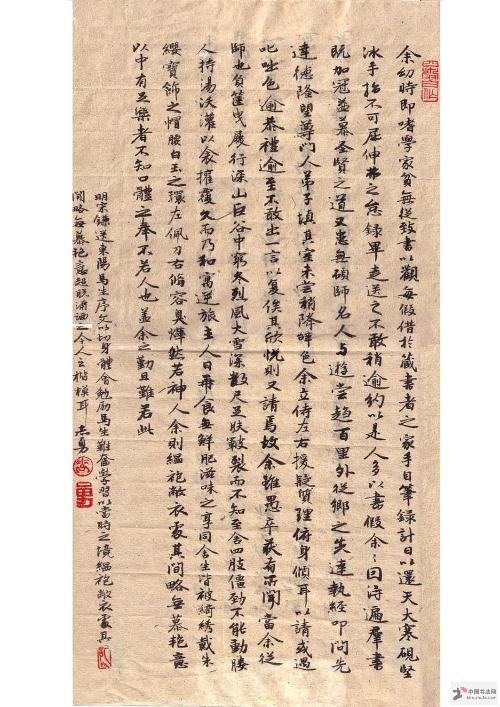 余幼時即嗜學家貧無從致書以觀每假借於藏書者之家手自筆錄計日以還天大寒硯堅
冰手指不可屈伸弗之怠錄畢走送之不敢稍逾約以是人多以書假余余因得遍群書
既加冠益慕聖賢之道又患無碩師名人與遊嘗趨百里外從鄉之先達執經叩問先
達德隆望尊門人弟子填其室未嘗稍降辭色余立侍左右援疑質理俯身傾耳以請或遇
叱咄色逾恭禮逾至不敢出一言以復俟其欣悅則又請焉故余雖愚卒獲有所聞當余從
師也負篋曳屣行深山巨谷中窮冬烈風大雪深數尺足膚皸裂而不知至舍四肢僵勁不能動媵
人持湯沃灌以衾擁覆久而乃和寓逆旅主人日再食無鮮肥滋味之享同舍生皆被綺繡戴朱
纓寶飾之帽腰白玉之環左佩刀右備容臭燁然若神人余則縕袍敝衣處其間略無慕艷意
以中有足樂者不知口體之奉不若人也蓋余之勤且難若此
明宋鎌送東陽馬生序文以切身體會勉勵馬生難奮學習以當時之境縕袍敝衣處其
間略無慕艷意超脫瀟洒之今人之楷模耳 志勇
中國書法網